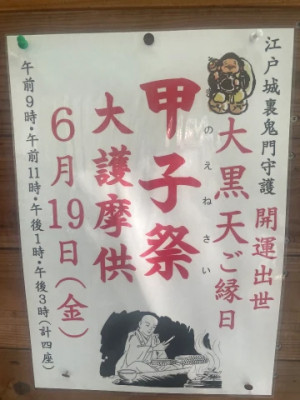 江戸城裏鬼門守護
開運出世
大黒天ご縁日
きのえねさい
甲子祭
大護摩供
6月19日(金)
午前9時・午前11時・午後1時・午後3時(計四座)